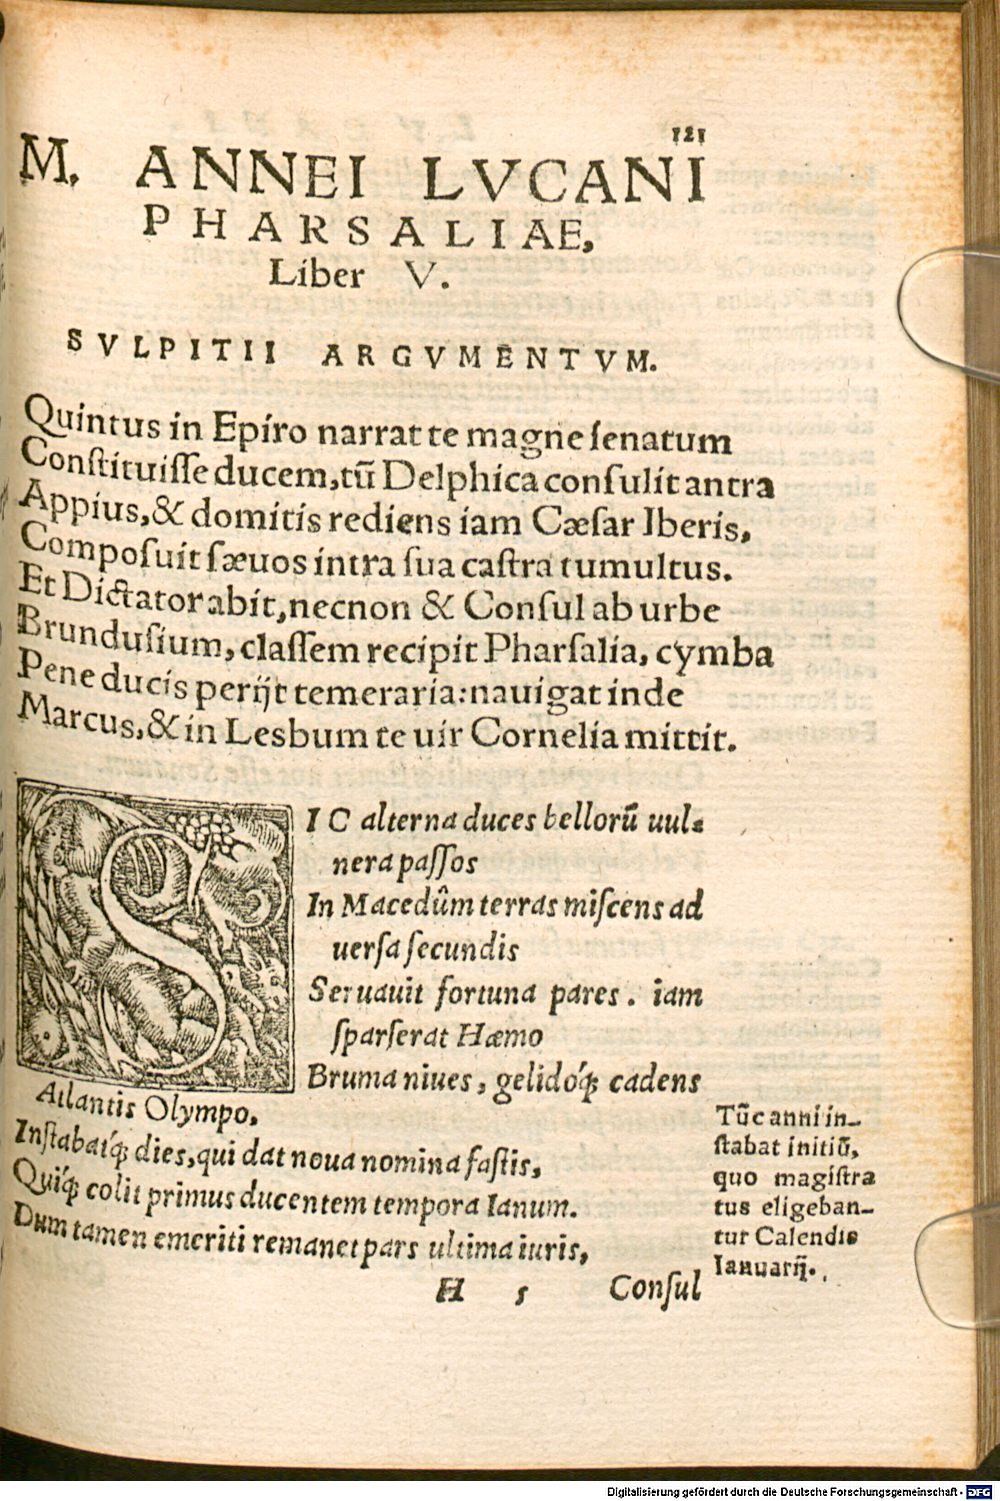 121
M. ANNEI LVCANI
PHARSALIAE,
Liber V.
SVLPITII ARGVMENTVM.
Quintus in Epiro narrat te magne ſenatum
Conſtituiſſe ducem, tū Delphica conſulit antra
Appius, & domitis rediens iam Cæſar Iberis,
Compoſuit ſæuos intra ſua caſtra tumultus.
Et Dictator abit, necnon & Conſul ab urbe
Brunduſium, claſſem recipit Pharſalia, cymba
Pene ducis perijt temeraria: nauigat inde
Marcus, & in Lesbum te uir Cornelia mittit.
SIC alterna duces bellorū uul-
nera paſſos
In Macedûm terras miſcens ad
uerſa ſecundis
Seruauit fortuna pares. iam
ſparſerat Hæmo
Bruma niues, gelidóq; cadens
Atlantis Olympo,
Inſtabatq́; dies, qui dat noua nomina faſtis,
Quiq́; colit primus ducentem tempora Ianum.
Dum tamen emeriti remanet pars ultima iuris,
Tūc anni in-
ſtabat initiū,
quo magiſtra
tus eligeban-
tur Calendis
Ianuarij.
H 5 Conſul
Digitalisierung gefördert durch die Deutsche Forschungsgemeinschaft - DFG